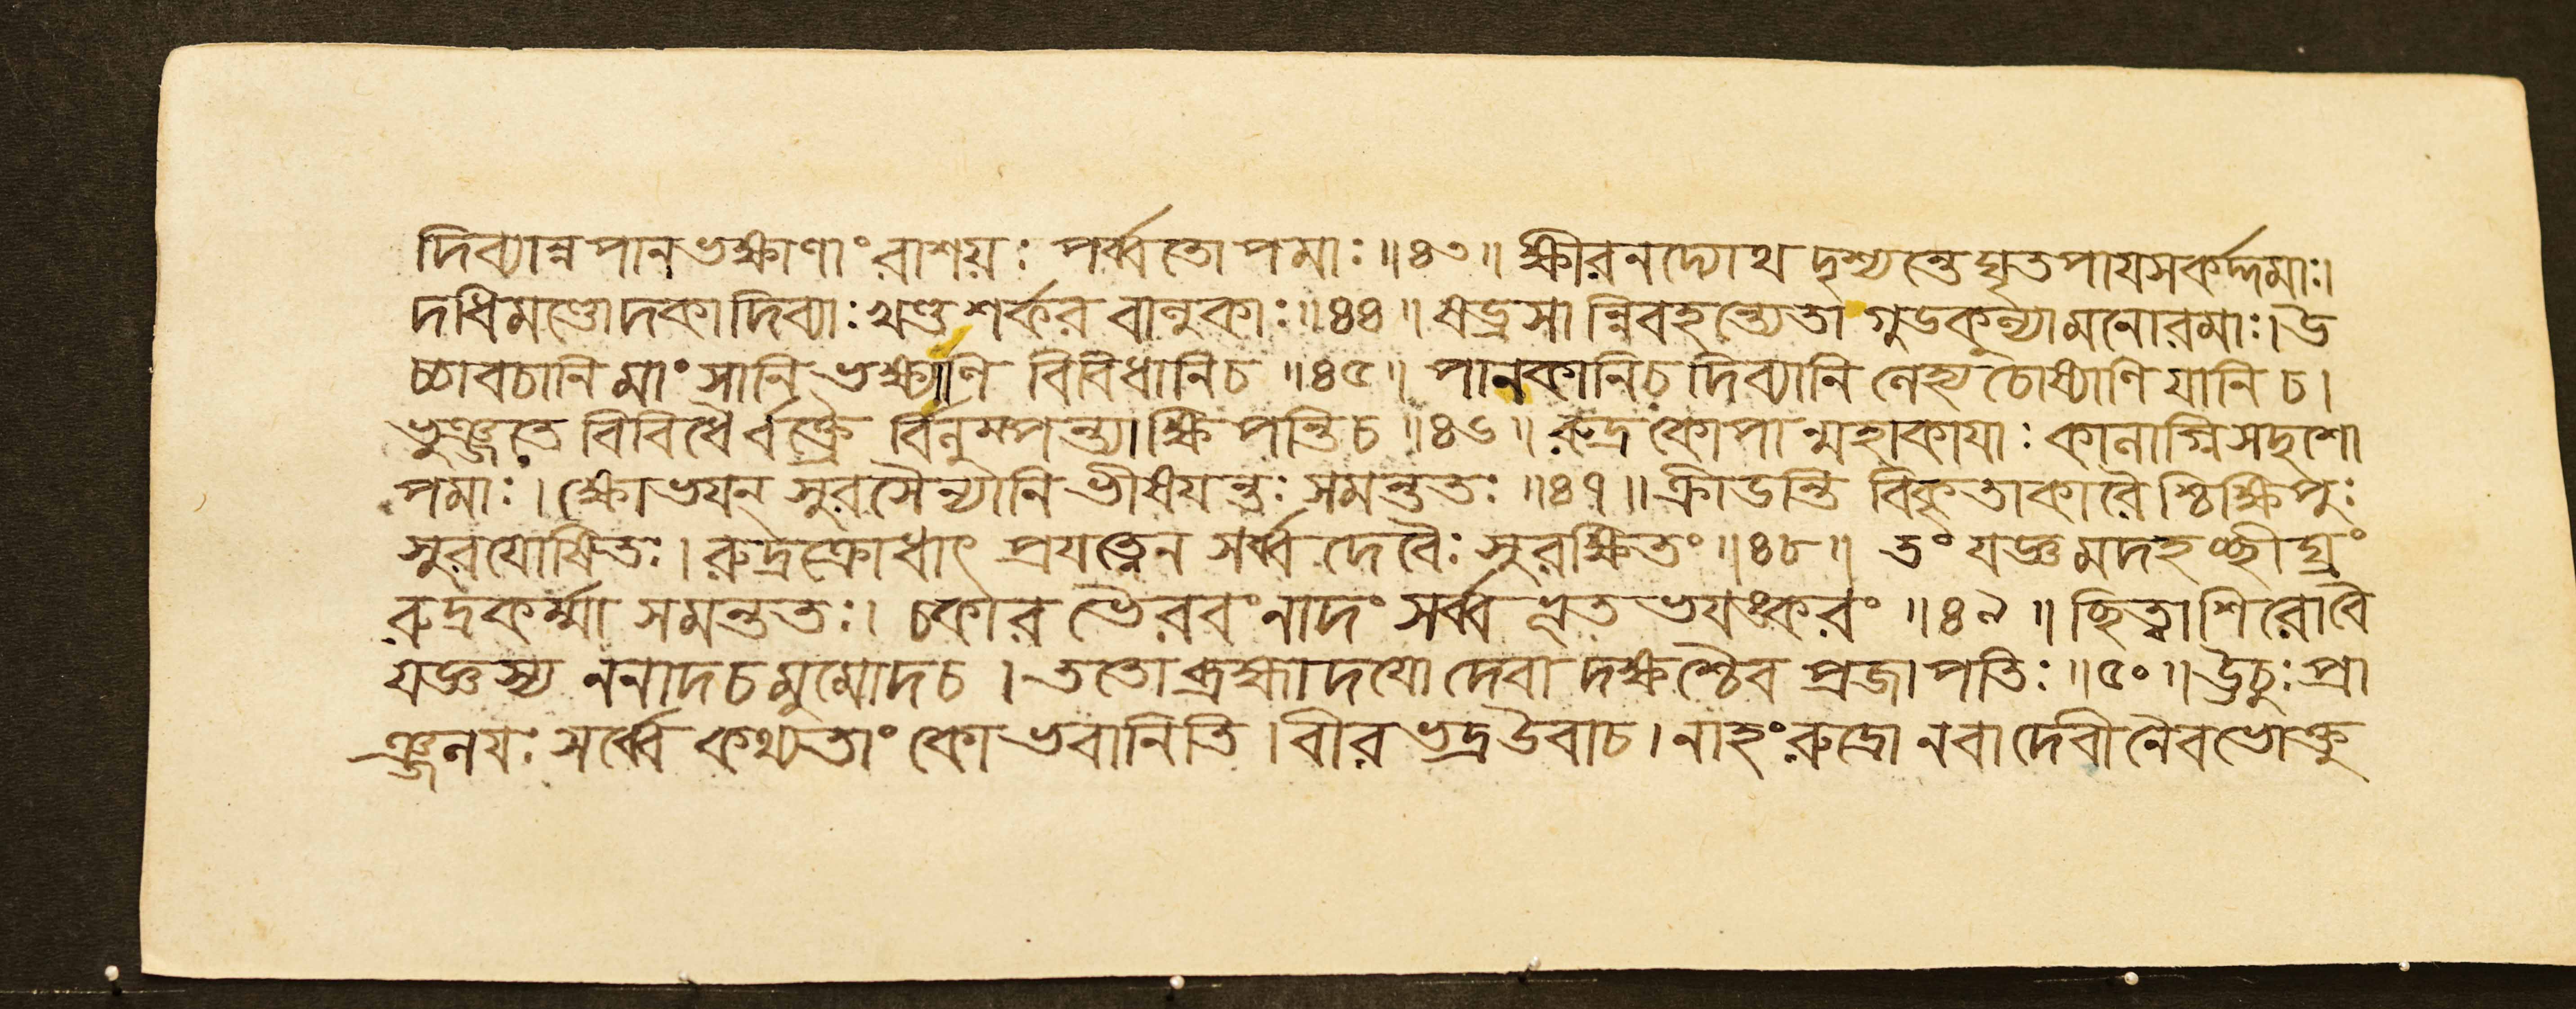 দিব্যান্নপানভক্ষাণাং রাশয়ঃ পর্ব্বতোপমাঃ॥৪৩॥ ক্ষীরনদ্যোথ দৃশ্যন্তে ঘৃতপাযসকর্দ্দমাঃ।
দধিমণ্ডোদকাদিব্যাঃ খণ্ডশর্করবালুকাঃ॥৪৪॥ ষড্রসান্নিবহন্ত্যেতা গুডকুল্যা মনোরমাঃ।উ
চ্চাবচানি মাংসানি ভক্ষ্যাণি বিবিধানিচ॥৪৫॥ পানকানিচ দিব্যানি লেহ্য চোষ্যাণি যানি চ।
ভুঞ্জতে বিবিধৈর্বক্ত্রৈ র্বিলুম্পন্ত্যাক্ষিপন্তিচ॥৪৬॥ রুদ্রকোপান্মহাকাযাঃ কালাগ্নিসদৃশো
পমাঃ। ক্ষোভযন্ সুরসৈন্যানি ভীষযন্তঃ সমন্ততঃ॥৪৭॥ ক্রীডন্তি বিকৃতাকারৈশ্চিক্ষিপুঃ
সুরযোষিতঃ। রুদ্রক্রোধাৎ প্রযত্নেন সর্ব্ব দেবৈঃ সুরক্ষিতং॥৪৮॥ তং যজ্ঞমদহচ্ছীঘ্রং
রুদ্রকর্ম্মা সমন্ততঃ। চকার ভৈরবং নাদং সর্ব্বভূতভযঙ্করং॥৪৯॥ ছিত্বা শিরোবৈ
যজ্ঞস্য ননাদচ মুমোদচ। ততো ব্রহ্মাদযো দেবা দক্ষশ্চৈব প্রজাপতিঃ॥৫০॥ ঊচুঃ প্রা
ঞ্জলযঃ সর্ব্বে কথ্যতাং কো ভবানিতি। বীরভদ্রউবাচ। নাহং রুদ্রো নবাদেবী নৈবভোক্তু